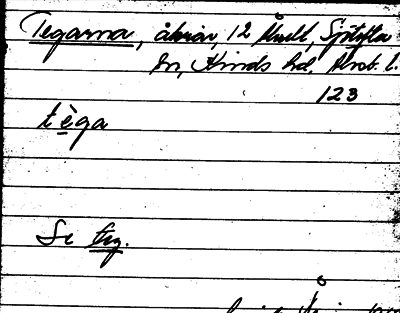 Tegarna, åkrar, 12 Amtl, Sjötofta
sn, Kinds hd, Älvsb. l.
123
tèga
Se teg.